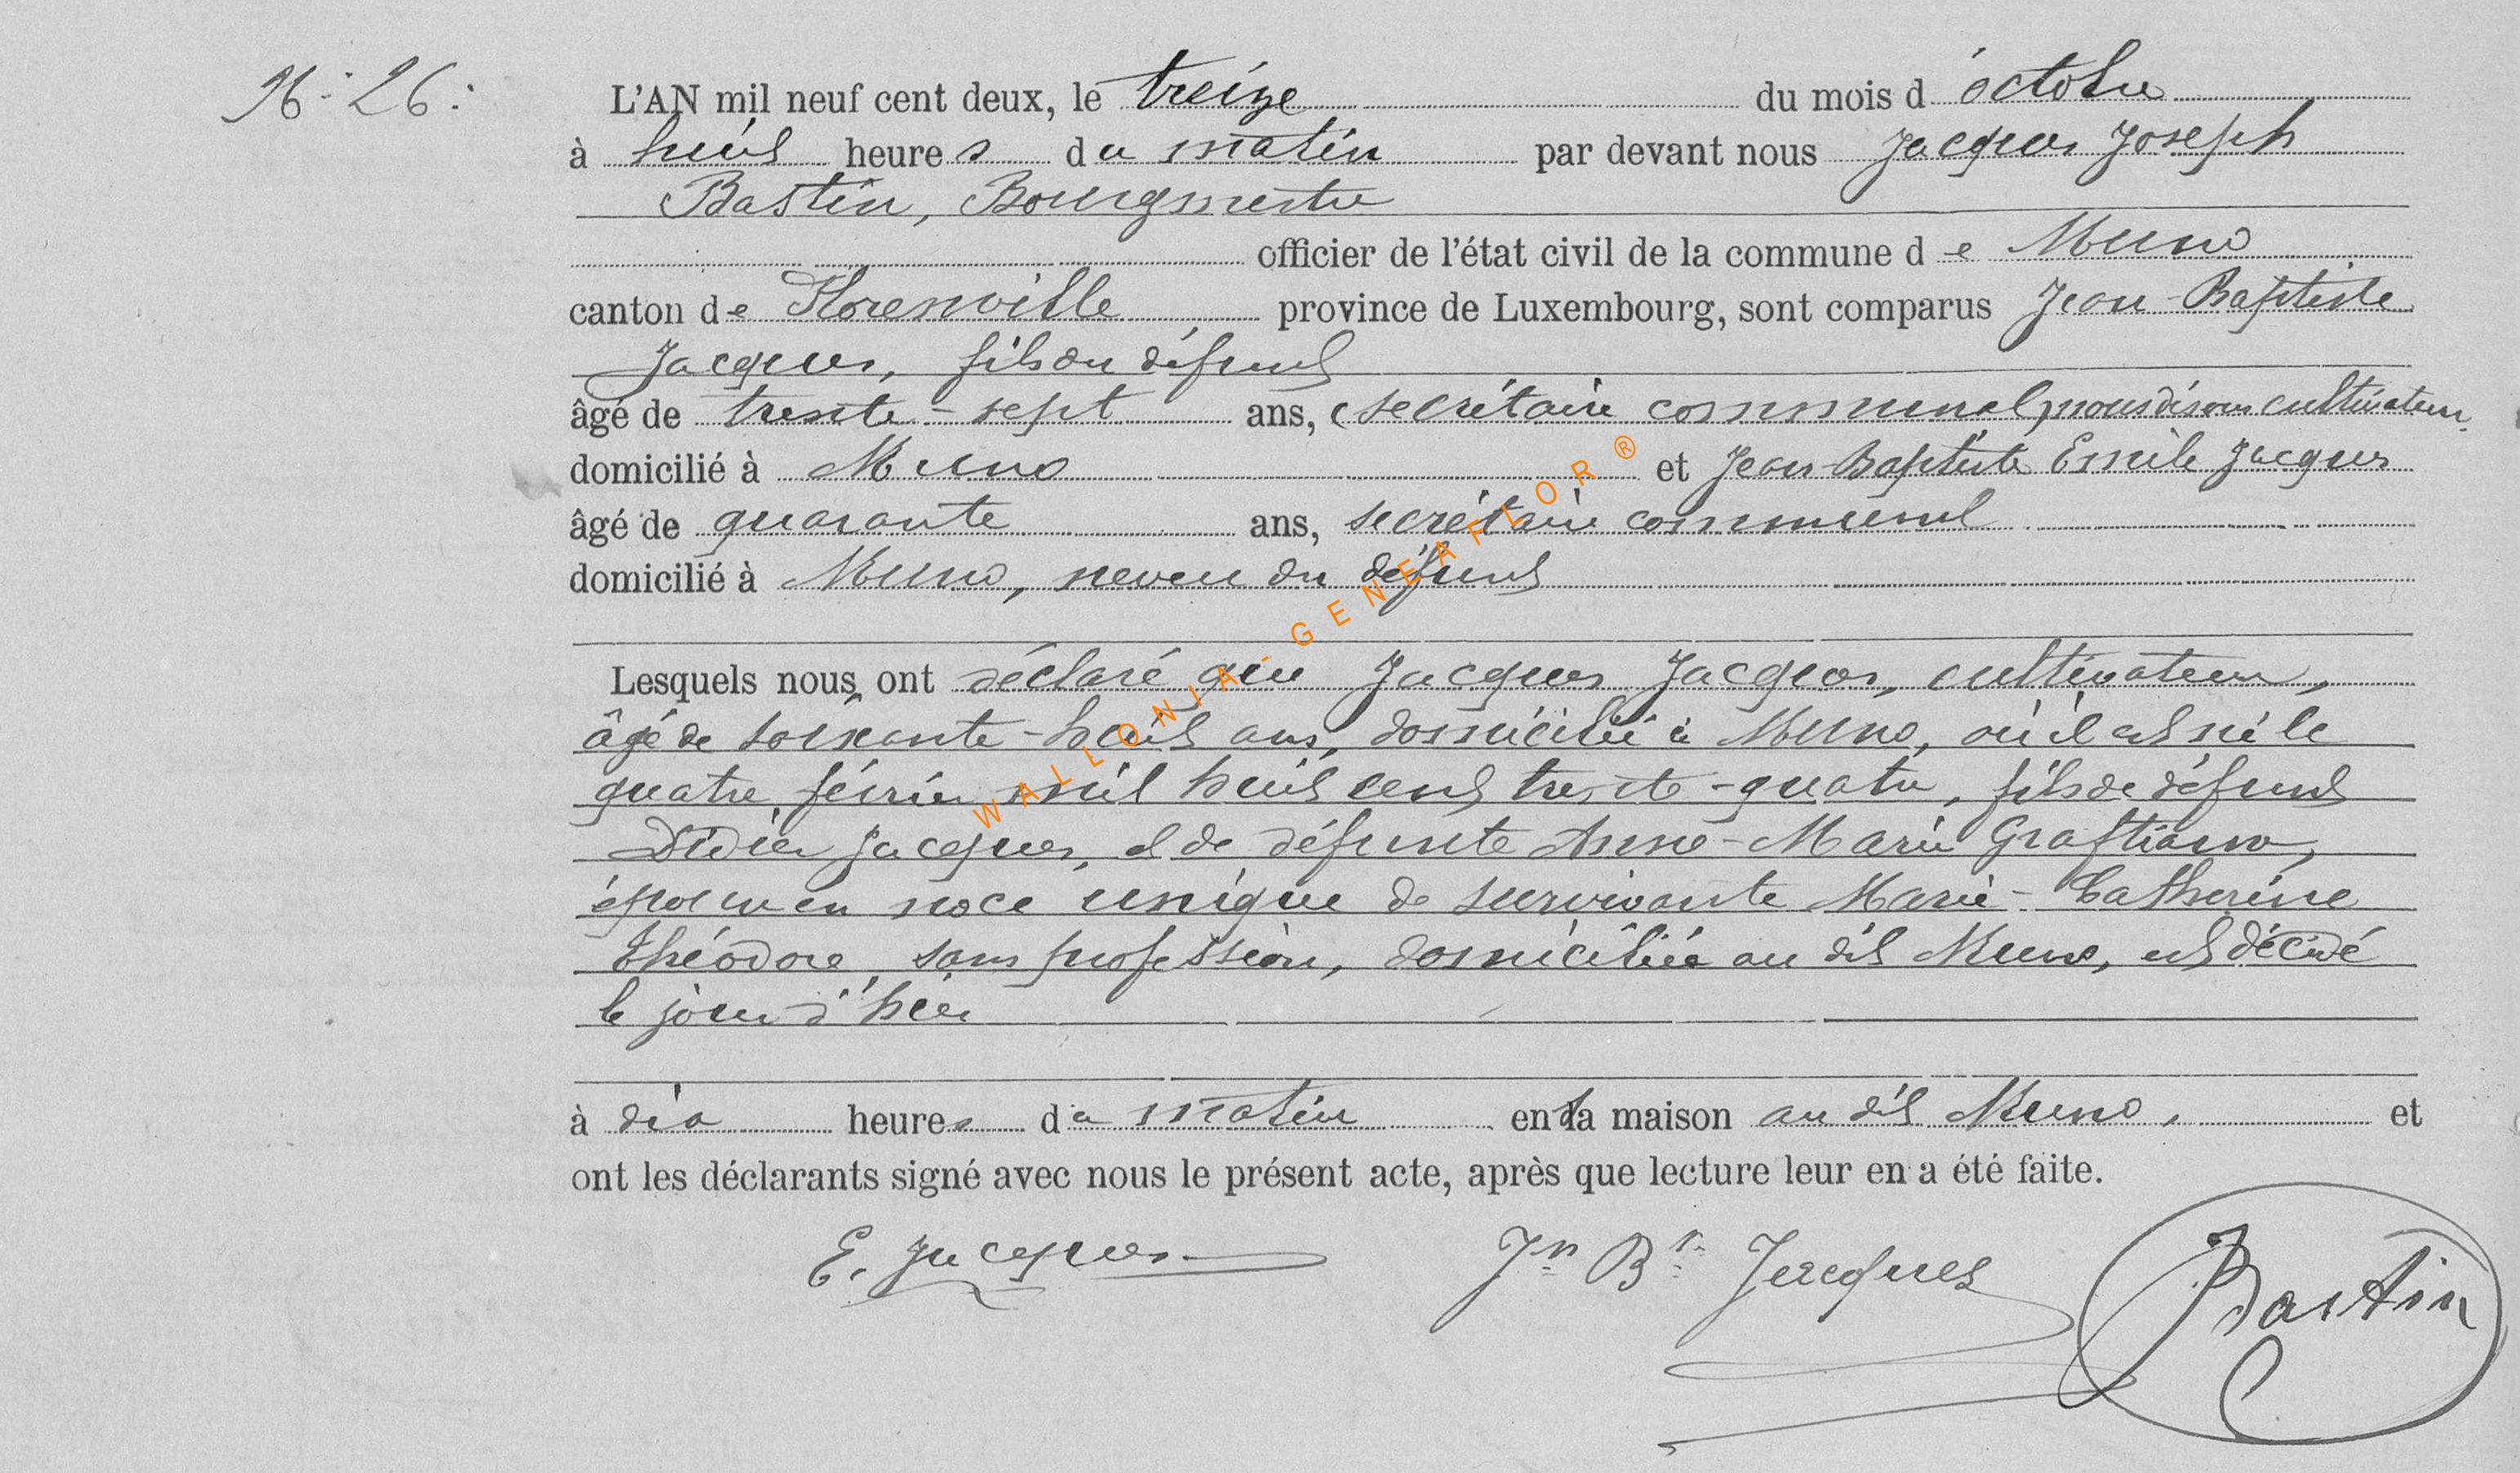 N° 26.
L'AN mil neuf cent deux, le treize du mois d'octobre
à huit heures du matin par devant nous Jacques Joseph
Bastin, Bourgmestre
officier de l'état civil de la commune de Muno
canton de Florenville, province de Luxembourg, sont comparus Jean-Baptiste
Jacques, fils du défunt
âgé de trente-sept ans, (secrétaire communal, nous disons cultivateur
domicilié à Muno et Jean-Baptiste Emile Jacques
âgé de quarante ans, secrétaire communal
domicilié à Muno, neveu du défunt
Lesquels nous ont déclaré que Jacques Jacques, cultivateur,
âgé de soixante-huit ans, domicilié à Muno, où il est né le
quatre février mil huit cent trente-quatre, fils de défunt
Didier Jacques, et de défunte Anne-Marie Graftiaux,
époux en noce unique de survivante Marie-Catherine
Théodore, sans profession, domiciliée au dit Muno, est décédé
le jour d'hier
à dix heures du matin en sa maison au dit Muno, et
ont les déclarants signé avec nous le présent acte, après que lecture leur en a été faite.
E. Jacques Jn Bte Jacques Bastin
WALLONIA-GENEAFLOR®